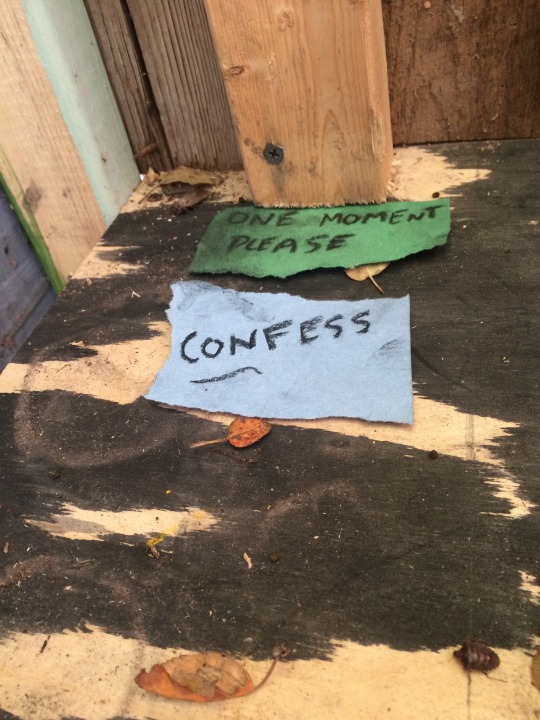 ONE MOMENT
PLEASE
CONFESS